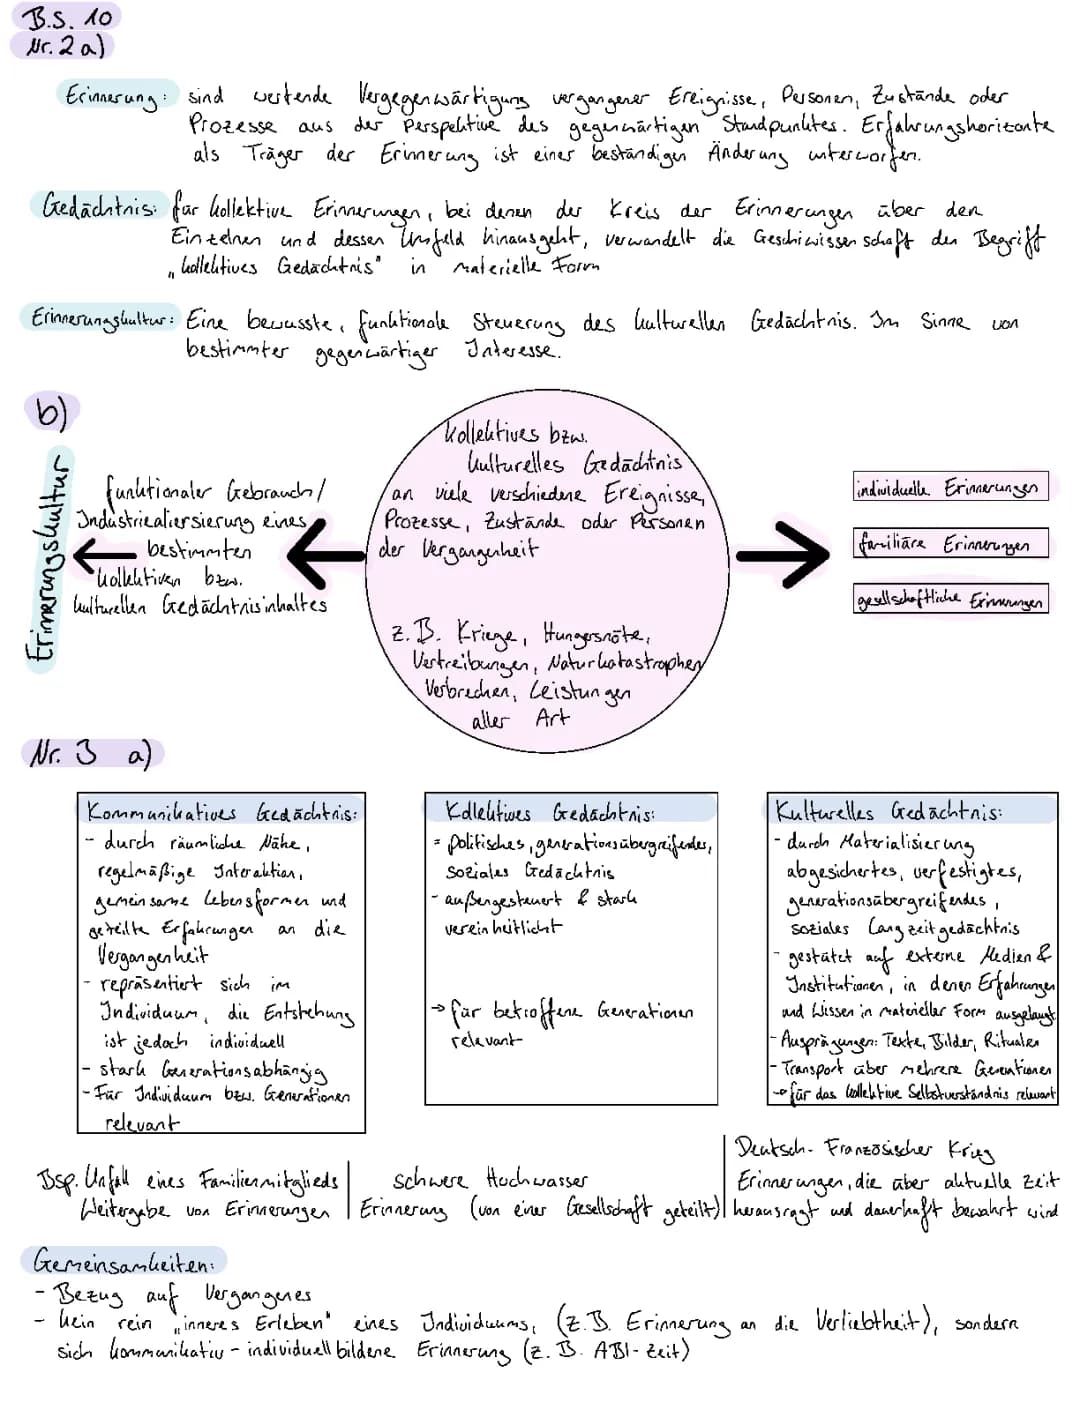 B.S. 10
Nr. 2 a)
Erinnerung: sind wertende Vergegenwärtigung vergangener Ereignisse, Personen, Zustände oder
Prozesse aus der Perspektive des gegenwärtigen Standpunktes. Erfahrungshorizonte
als Träger der Erinnerung ist einer beständigen Änderung unterworfen.
Gedächtnis: für kollektive Erinnerungen, bei denen der Kreis der Erinnerungen über den
Einzelnen und dessen Umfeld hinausgeht, verwandelt die Geschiwissenschaft den Begriff
„kollektives Gedächtnis" in materielle Form
Erinnerungskultur: Eine bewusste, funktionale Steuerung des kulturellen Gedächtnis. Im Sinne von
bestimmter gegenwärtiger Interesse.
b)
Erinnerungskultur
funktionaler Gebrauch/
Industriealiersierung eines
bestimmten
kollektiven bzw.
kulturellen Gedächtnisinhaltes
kollektives bzw.
kulturelles Gedächtnis
an viele verschiedene Ereignisse,
Prozesse, Zustände oder Personen
der Vergangenheit
z.B. Kriege, Hungersnöte,
Vertreibungen, Naturkatastrophen,
Verbrechen, Leistungen
aller Art
individuelle Erinnerungen
familiäre Erinnerungen
gesellschaftliche Erinnerungen
Nr. 3 a)
Kommunikatives Gedächtnis:
- durch räumliche Nähe,
regelmäßige Interaktion,
gemeinsame Lebensformen und
geteilte Erfahrungen an die
Vergangenheit
- repräsentiert sich im
Individuum, die Entstehung
ist jedoch individuell
- stark Generationsabhängig
- Für Individuum bzw. Generationen
relevant
Kollektives Gedächtnis:
= politisches, generationsübergreifendes,
soziales Gedächtnis
- außengesteuert & stark
vereinheitlicht
→ für betroffene Generationen
relevant
Kulturelles Gedächtnis:
- durch Materialisierung
abgesichertes, verfestigtes,
generationsübergreifendes,
soziales Langzeitgedächtnis
- gestützt auf externe Medien &
Institutionen, in denen Erfahrungen
und Wissen in materieller Form ausgelaugt
- Ausprägungen: Texte, Bilder, Ritualen
- Transport über mehrere Generationen
→ für das kollektive Selbstverständnis relevant
Bsp. Unfall eines Familienmitglieds
Weitergabe von Erinnerungen
schwere Hochwasser
Erinnerung (von einer Gesellschaft geteilt)
Deutsch-Französischer Krieg
Erinnerungen, die über aktuelle Zeit
herausragt und dauerhaft bewahrt wird
Gemeinsamkeiten:
- Bezug auf Vergangenes
- kein rein „inneres Erleben" eines Individuums, (z.B. Erinnerung an die Verliebtheit), sondern
sich kommunikativ - individuell bildene Erinnerung (z.B. ABI-Zeit)